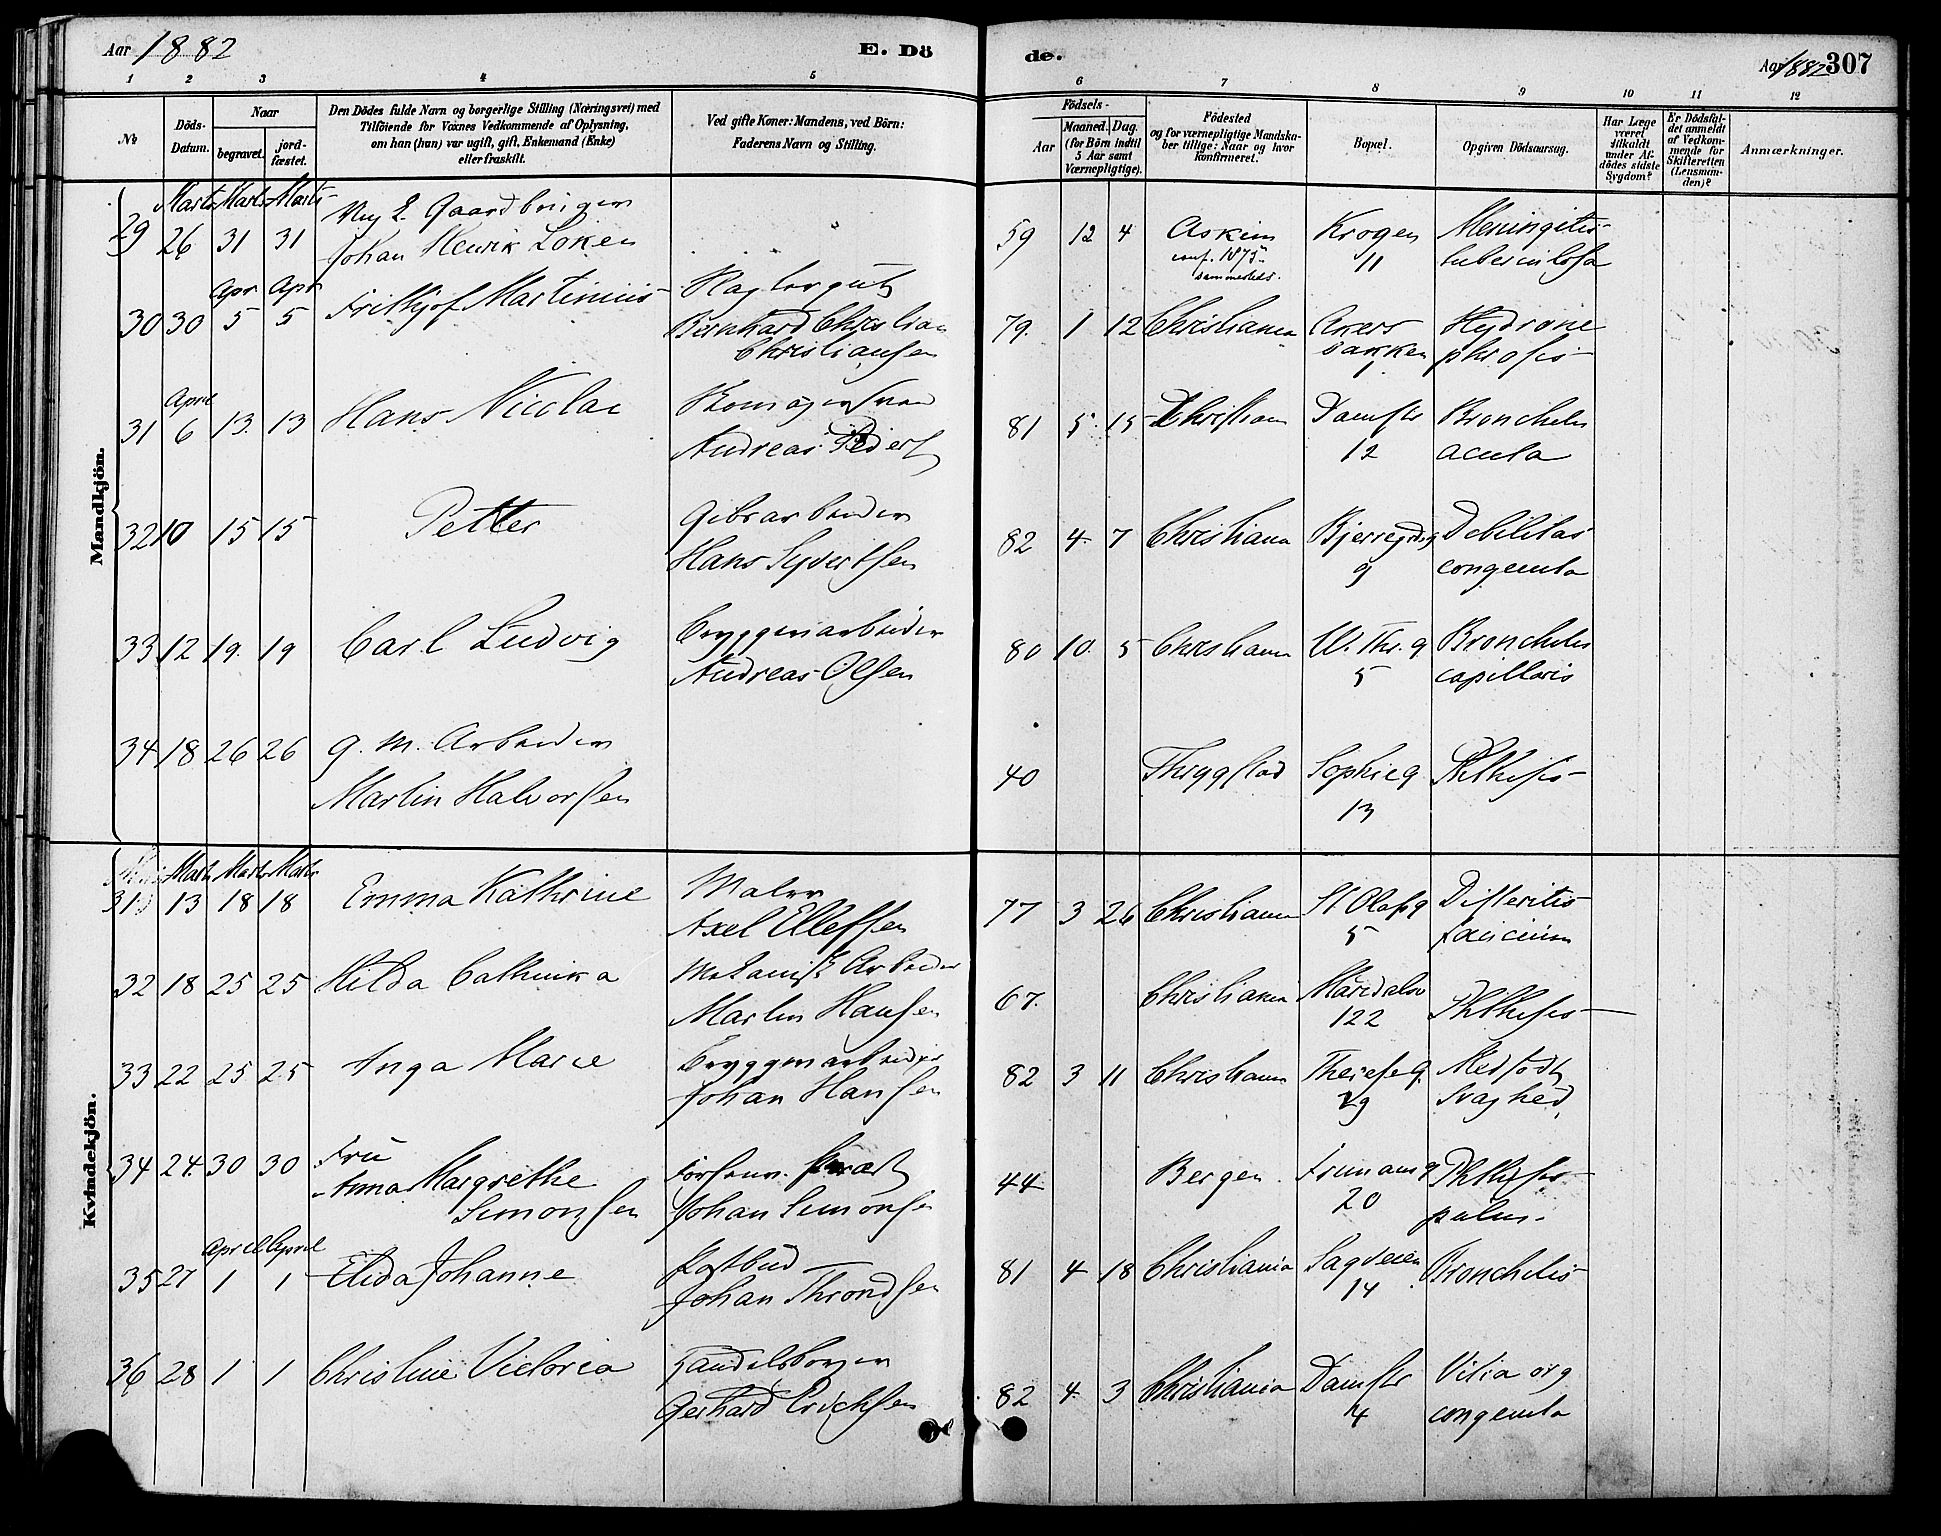 Aar 1882
E. Dö
de.
Aar 1882 307
1 2 3 4 5 6 7 8 9 10 11 12
No
Döds-
Datum.
Naar
begravet.
jord-
fæstet.
Den Dödes fulde Navn og borgerlige Stilling (Næringsvei) med
Tilföiende for Voxnes Vedkommende af Oplysning,
om han (hun) var ugift, gift, Enkemand (Enke)
eller fraskilt.
Ved gifte Koner: Mandens, ved Börn:
Faderens Navn og Stilling.
Födsels-
Aar
Maaned. Dag.
(for Börn indtil
5 Aar samt
Værnepligtige).
Födested
og for værnepligtige Mandska-
ber tillige: Naar og hvor
konfirmeret.
Bopæl.
Opgiven Dödsaarsag.
Har Læge
været
tilkaldt
under Af-
dödes sidste
Sygdom?
Er Dödsfal-
det anmeldt
af Vedkom-
mende for
Skifteretten
(Lensman-
den)?
Anmærkninger.
Mandkjön.
Marts Marts Marts
29 26 31 31 Ung. Gaardbruger
Johan Henrik Loken
59 12 4 Askim Krogen Meningitis
conf. 1875 11 tuberculosa
sammesteds.
Apr Apr
30 30 5 5 Frithjof Martinius
Bernhard Christian
Christiansen
79. 1 12 Christiania Akers Hydrone
bakken phrosis
April
31 6 13. 13 Hans Nicolai
Andreas Peders
81 5. 15 Christiania Damstr Bronchitis
12 acuta
32 10 15 15 Petter Gibsarbeider
Hans Syvertsen
82 4. 7 Christiania Bjerregdg Debilitas
9 congenita
33 12 19. 19 Carl Ludvig Bryggeriarbeider
Andreas Olsen
80 10. 5 Christiania W. Thr. g Bronchitis
5 capillaris
34 18 26 26 g. M. Arbeider
Martin Halvorsen
40 Thrygstad Sophieg Phthisis
13
Kvindekjön.
Marts Marts Marts
31 13 18 18 Emma Kathrine Maler
Axel Ellefsen
77 3 26 Christiania St Olafsg Difteritis
5 faucium
32 18 25 25 Hilda Cathinka Mekanisk Arbeider
Martin Hansen
67. Christiania Maridalsv Phthisis
122
33 22 25 25 Inga Marie Bryggeriarbeider
Johan Hansen
82 3 11 Christiania Theresesg. Medfødt
29 Svaghed
34 24. 30 30 Fru
Anna Margrethe
Simonsen
Johan Simonsen
44 Bergen. Frimansg Phthisis
20 pulm.
April April
35 27 1 1 Elida Johanne Postbud
Johan Throndsen
81 4 18 Christiania Sagveien Bronchitis
14
36 28 1 1 Christine Victoria Handelsborger
Gerhard Erichsen
82 4. 3 Christiania Damstr Vitia org
4 congenita